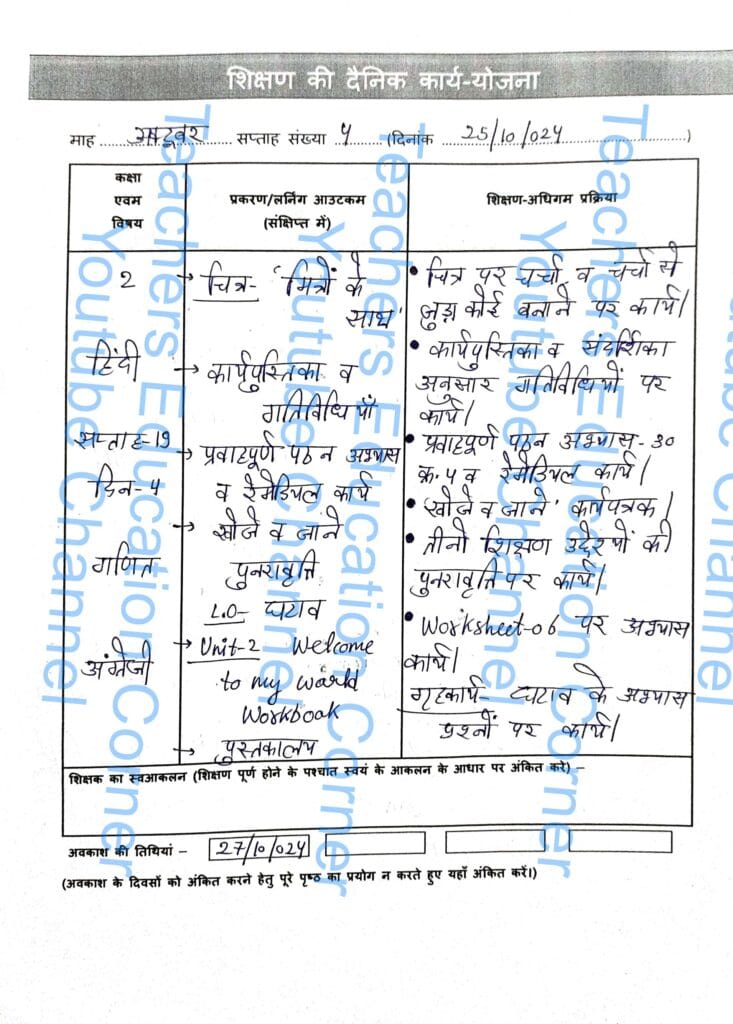 शिक्षण की दैनिक कार्य-योजना
माह अक्टूबर सप्ताह संख्या 4 (दिनांक 25/10/024)
कक्षा
एवम
विषय
प्रकरण/लर्निंग आउटकम
(संक्षिप्त में)
शिक्षण-अधिगम प्रक्रिया
2
हिंदी
सप्ताह-19
दिन-4
गणित
अंग्रेजी
→ चित्र- 'मित्रों के
साथ'
→ कार्यपुस्तिका व
गतिविधियाँ
→ प्रवाहपूर्ण पठन अभ्यास
व रेमेडियल कार्य
→ खोजे व जाने
पुनरावृत्ति
L.O- घटाव
→ Unit-2 Welcome
to my world
Workbook
→ पुस्तकालय
• चित्र पर चर्चा व चर्चा से
जुड़ा कोई बनाने पर कार्य।
• कार्यपुस्तिका व संदर्शिका
अनुसार गतिविधियों पर
कार्य।
• प्रवाहपूर्ण पठन अभ्यास-30
क्र.4 व रेमेडियल कार्य।
• 'खोजे व जाने' कार्यपत्रक।
• तीनो शिक्षण उद्देश्यों की
पुनरावृत्ति पर कार्य।
• Worksheet-06 पर अभ्यास
कार्य।
गृहकार्य- घटाव के अभ्यास
प्रश्नों पर कार्य।
शिक्षक का स्वआकलन (शिक्षण पूर्ण होने के पश्चात स्वयं के आकलन के आधार पर अंकित करे) –
अवकाश की तिथियां – 27/10/024
(अवकाश के दिवसों को अंकित करने हेतु पूरे पृष्ठ का प्रयोग न करते हुए यहाँ अंकित करें।)
Teachers Education Corner
Youtube Channel
Teachers Education Corner
Youtube Channel
Teachers Education Corner
Youtube Channel